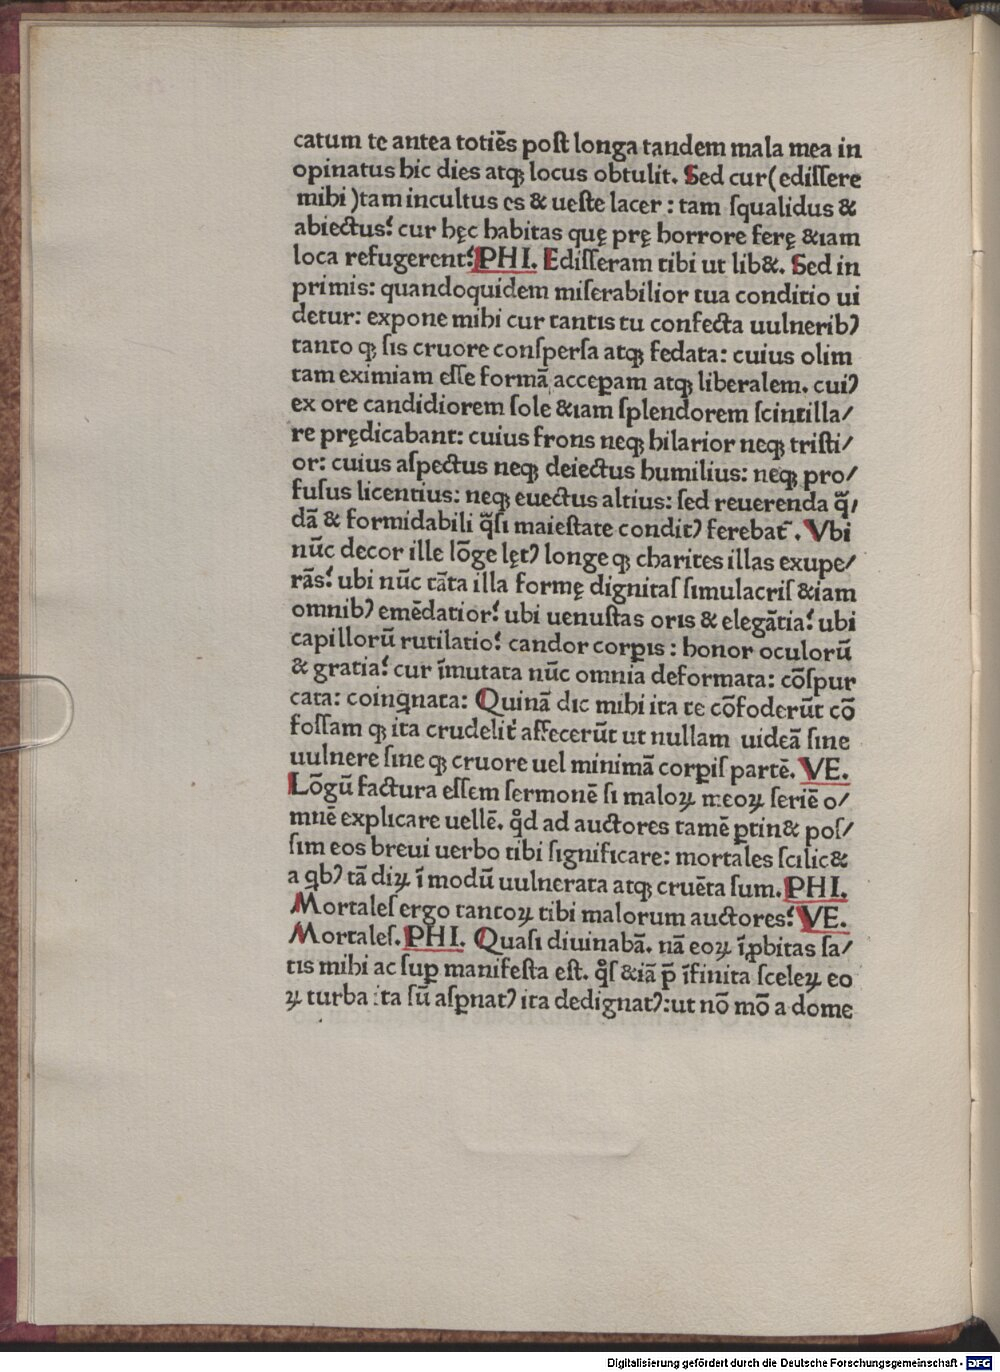 catum te antea totiēs poſt longa tandem mala mea in
opinatus hic dies atqꝫ locus obtulit. Sed cur(ediſſere
mihi )tam incultus es & ueſte lacer : tam ſqualidus &
abiectus? cur hęc habitas quę prę horrore ferę &iam
loca refugerent? PHI. Ediſſeram tibi ut lib&. Sed in
primis: quandoquidem miſerabilior tua conditio ui
detur: expone mihi cur tantis tu confecta uulneribꝰ
tanto qꝫ ſis cruore conſperſa atqꝫ fedata: cuius olim
tam eximiam eſſe formā acceꝑam atqꝫ liberalem. cuiꝰ
ex ore candidiorem ſole &iam ſplendorem ſcintilla/
re prędicabant: cuius frons neqꝫ hilarior neqꝫ triſti/
or: cuius aſpectus neqꝫ deiectus humilius: neqꝫ pro/
fuſus licentius: neqꝫ euectus altius: ſed reuerenda q̄/
dā & formidabili q̄ſi maieſtate conditꝰ ferebat̄. Vbi
nūc decor ille lōge lętꝰ longe qꝫ charites illas exupe/
rās? ubi nūc tāta illa formę dignitaſ ſimulacriſ &iam
omnibꝰ emēdatior? ubi uenuſtas oris & elegātia? ubi
capillorū rutilatio? candor corꝑis : honor oculorū
& gratia? cur īmutata nūc omnia deformata: cōſpur
cata: coinqnata: Quinā dic mihi ita te cōfoderūt cō
foſſam qꝫ ita crudelit̄ affecerūt ut nullam uideā ſine
uulnere ſine qꝫ cruore uel minimā corꝑiſ partē. VE.
Lōgū factura eſſem ſermonē ſi maloꝝ meoꝝ ſeriē o/
mnē explicare uellē. qd̊ ad auctores tamē ꝑtin& poſ/
ſim eos breui uerbo tibi ſignificare: mortales ſcilic&
a qbꝰ tā diꝝ ī modū uulnerata atqꝫ cruēta ſum. PHI.
Mortaleſ ergo tantoꝝ tibi malorum auctores? VE.
Mortaleſ. PHI. Quaſi diuinabā. nā eoꝝ īꝓbitas ſa/
tis mihi ac ſuꝑ manifeſta eſt. qͦſ &iā p̄ īfinita ſceleꝝ eo
ꝝ turba ita ſū aſꝑnatꝰ ita dedignatꝰ:ut nō mō a dome
Digitalisierung gefördert durch die Deutsche Forschungsgemeinschaft - DFG